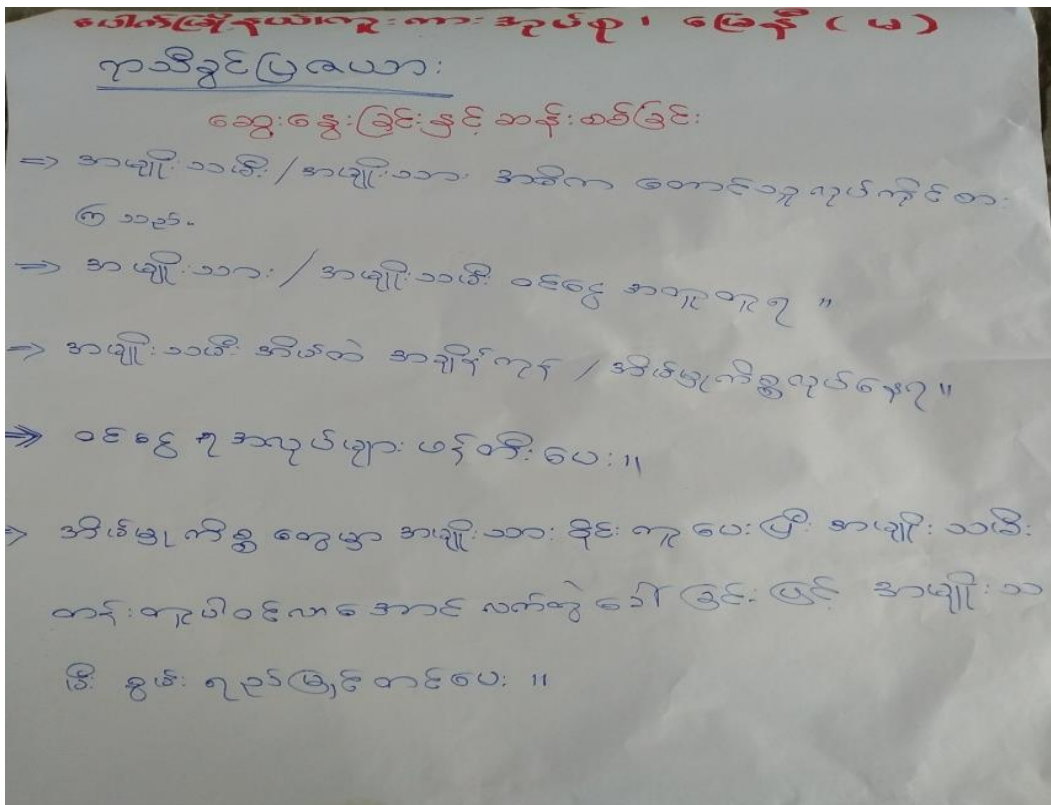 ပေါက်မြို့နယ်၊ကူးကားအုပ်စု၊ မြေနီ (မ)
ရာသီခွင်ပြဇယား
ဆွေးနွေးခြင်းနှင့် ဆန်းစစ်ခြင်း
⇒ အမျိုးသမီး/အမျိုးသား အဓိက တောင်သူလုပ်ကိုင်စား
ကြသည်.
⇒ အမျိုးသား/အမျိုးသမီး ဝင်ငွေ အတူတူရ ။
⇒ အမျိုးသမီး အိမ်ထဲ အချိန်ကုန် / အိမ်မှုကိစ္စလုပ်နေရ။
⇒ ဝင်ငွေ ရ အလုပ်များ ဖန်တီးပေး။
⇒ အိမ်မှု ကိစ္စ တွေမှာ အမျိုးသား ဝိုင်းကူပေးပြီး အမျိုးသမီး
တန်းတူပါဝင်လာအောင် လက်တွဲခေါ်ခြင်းဖြင့် အမျိုးသ
မီး စွမ်းရည်မြှင့်တင်ပေး ။